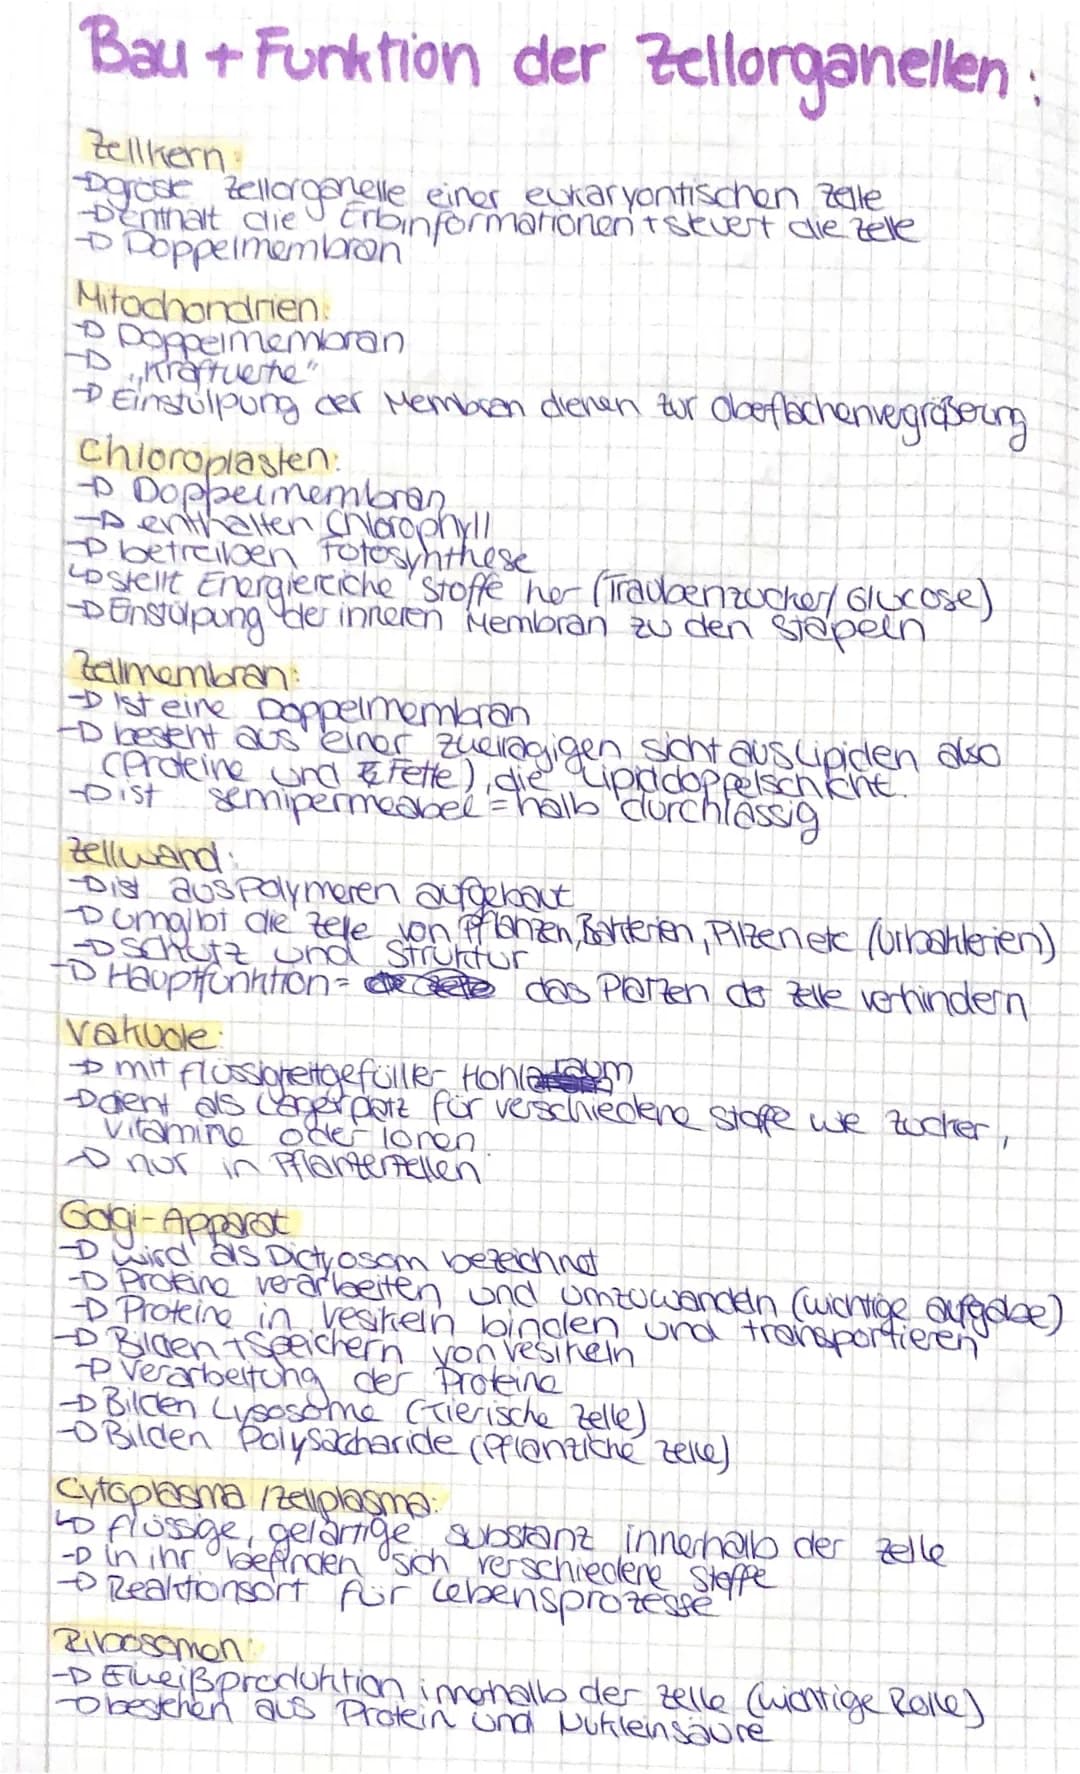 Bau + Funktion der Zellorganellen:
Zellkern:
→ große Zellorganelle einer eukaryontischen Zelle
→ Enthält die Erbinformationen + steuert die Zelle
→ Doppelmembran
Mitochondrien:
→ Doppelmembran
→ „Kraftwerke"
→ Einstülpung der Membran dienen zur Oberflächenvergrößerung
Chloroplasten:
→ Doppelmembran
→ enthalten Chlorophyll
→ betreiben Fotosynthese
↳ stellt Energiereiche Stoffe her (Traubenzucker/Glucose)
→ Einstülpung der inneren Membran zu den Stapeln
Zellmembran:
→ ist eine Doppelmembran
→ besteht aus einer zweilagigen Sicht aus Lipiden also
(Proteine und Fette), die Lipiddoppelschicht.
→ ist semipermeabel = halb durchlässig
Zellwand:
→ ist aus Polymeren aufgebaut
→ umgibt die Zelle von Pflanzen, Bakterien, Pilzen etc (Urbakterien)
→ Schutz und Struktur
→ Hauptfunktion = das Platzen der Zelle verhindern
Vakuole:
→ mit flüssigkeitgefüllter Hohlraum
→ dient als Lagerplatz für verschiedene Stoffe wie Zucker,
Vitamine oder Ionen
→ nur in Pflanzenzellen
Golgi-Apparat
→ wird als Dictyosom bezeichnet
→ Proteine verarbeiten und umzuwandeln (wichtige aufgabe)
→ Proteine in Vesikeln binden und transportieren
→ Bilden + Speichern von Vesikeln
→ Verarbeitung der Proteine
→ Bilden Lysosome (Tierische Zelle)
→ Bilden Polysaccharide (Pflanzliche Zelle)
Cytoplasma / Zellplasma:
↳ flüssige, gelartige Substanz innerhalb der Zelle
→ in ihr befinden sich verschiedene Stoffe
→ Reaktionsort für Lebensprozesse
Ribosomen:
→ Eiweißproduktion innerhalb der Zelle (wichtige Rolle)
→ bestehen aus Protein und Nukleinsäure